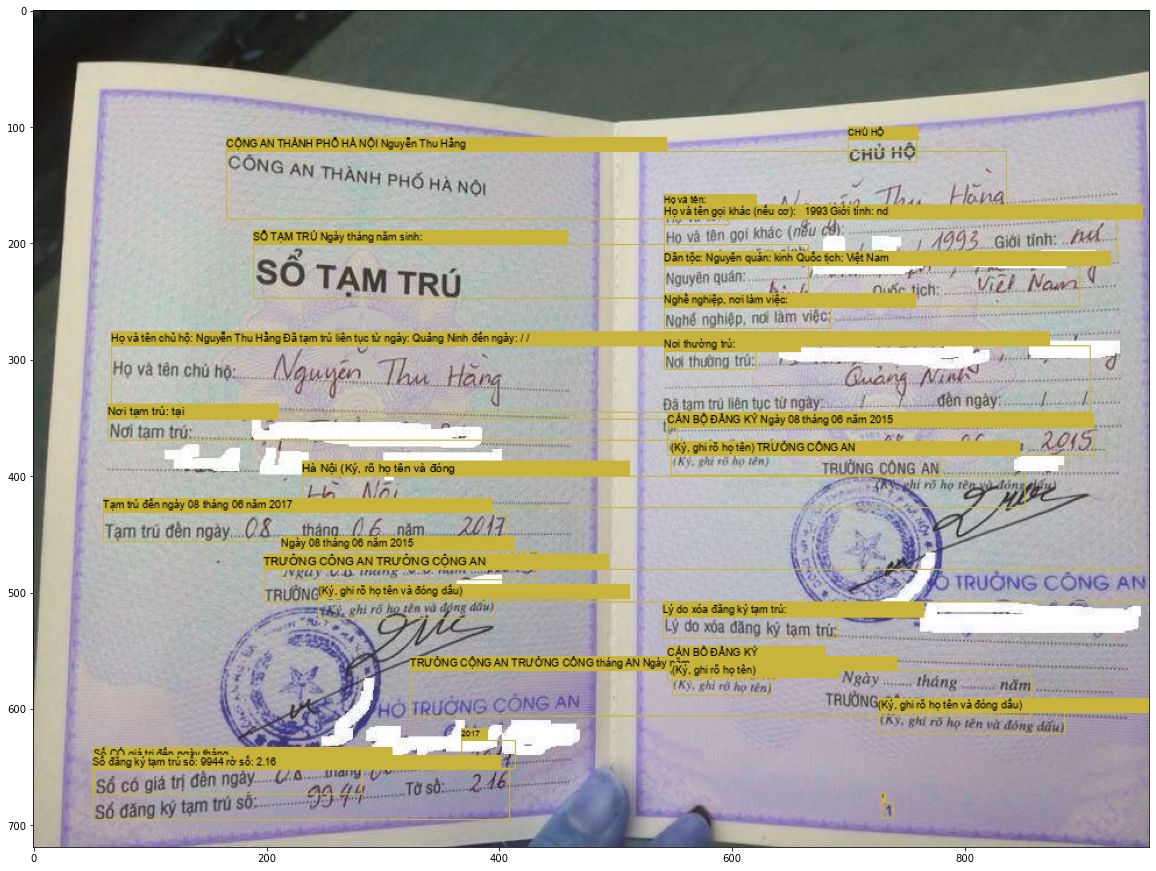 0
100
200
300
400
500
600
700
CỘNG AN THÀNH PHỐ HÀ NỘI Nguyễn Thu Hằng
CÔNG AN THÀNH PHỐ HÀ NỘI
SỔ TẠM TRÚ Ngày tháng năm sinh:
SỔ TẠM TRÚ
Họ và tên chủ hộ: Nguyễn Thu Hằng Đã tạm trú liên tục từ ngày: Quảng Ninh đến ngày: / /
Họ và tên chủ hộ: Nguyễn Thu Hằng
Nơi tạm trú: tại
Nơi tạm trú:
Hà Nội (Ký, rõ họ tên và đóng
Hà Nội
Tạm trú đến ngày 08 tháng 06 năm 2017
Tạm trú đến ngày 08 tháng 06 năm 2017
Ngày 08 tháng 06 năm 2015
TRƯỞNG CÔNG AN TRƯỞNG CÔNG AN
Ngày 08 tháng
TRƯỞNG
(Ký, ghi rõ họ tên và đóng dấu)
(Ký, ghi rõ họ tên và đóng dấu)
TRƯỞNG CỘNG AN TRƯỞNG CÔNG tháng AN Ngày năm
TRƯỞNG CÔNG AN
2017
Số CÓ giá trị đến ngày tháng
Số đăng ký tạm trú số: 9944 rờ số: 2.16
Sổ có giá trị đến ngày 08 tháng
Tờ số: 216
Sổ đăng ký tạm trú số: 9944
CHỦ HỘ
CHỦ HỘ
Họ và tên:
Nguyễn Thu Hằng
Họ và tên gọi khác (nếu cơ): 1993 Giới tính: nd
Họ và tên gọi khác (nếu có):
1993 Giới tính: nữ
Dân tộc: Nguyên quán: kinh Quốc tịch: Việt Nam
Nguyên quán:
Quốc tịch: Việt Nam
Nghề nghiệp, nơi làm việc:
Nghề nghiệp, nơi làm việc:
Nơi thường trú:
Nơi thường trú:
Quảng Ninh
Đã tạm trú liên tục từ ngày: / / đến ngày: / /
CÁN BỘ ĐĂNG KÝ Ngày 08 tháng 06 năm 2015
2015
(Ký, ghi rõ họ tên) TRƯỞNG CÔNG AN
(Ký, ghi rõ họ tên)
TRƯỞNG CÔNG AN
(Ký, ghi rõ họ tên và đóng dấu)
TRƯỞNG CÔNG AN
Lý do xóa đăng ký tạm trú:
Lý do xóa đăng ký tạm trú:
CÁN BỘ ĐĂNG KÝ
(Ký, ghi rõ họ tên)
(Ký, ghi rõ họ tên)
Ngày ....... tháng ........ năm
TRƯỞNG
(Ký, ghi rõ họ tên và đóng dấu)
(Ký, ghi rõ họ tên và đóng dấu)
1
0 200 400 600 800